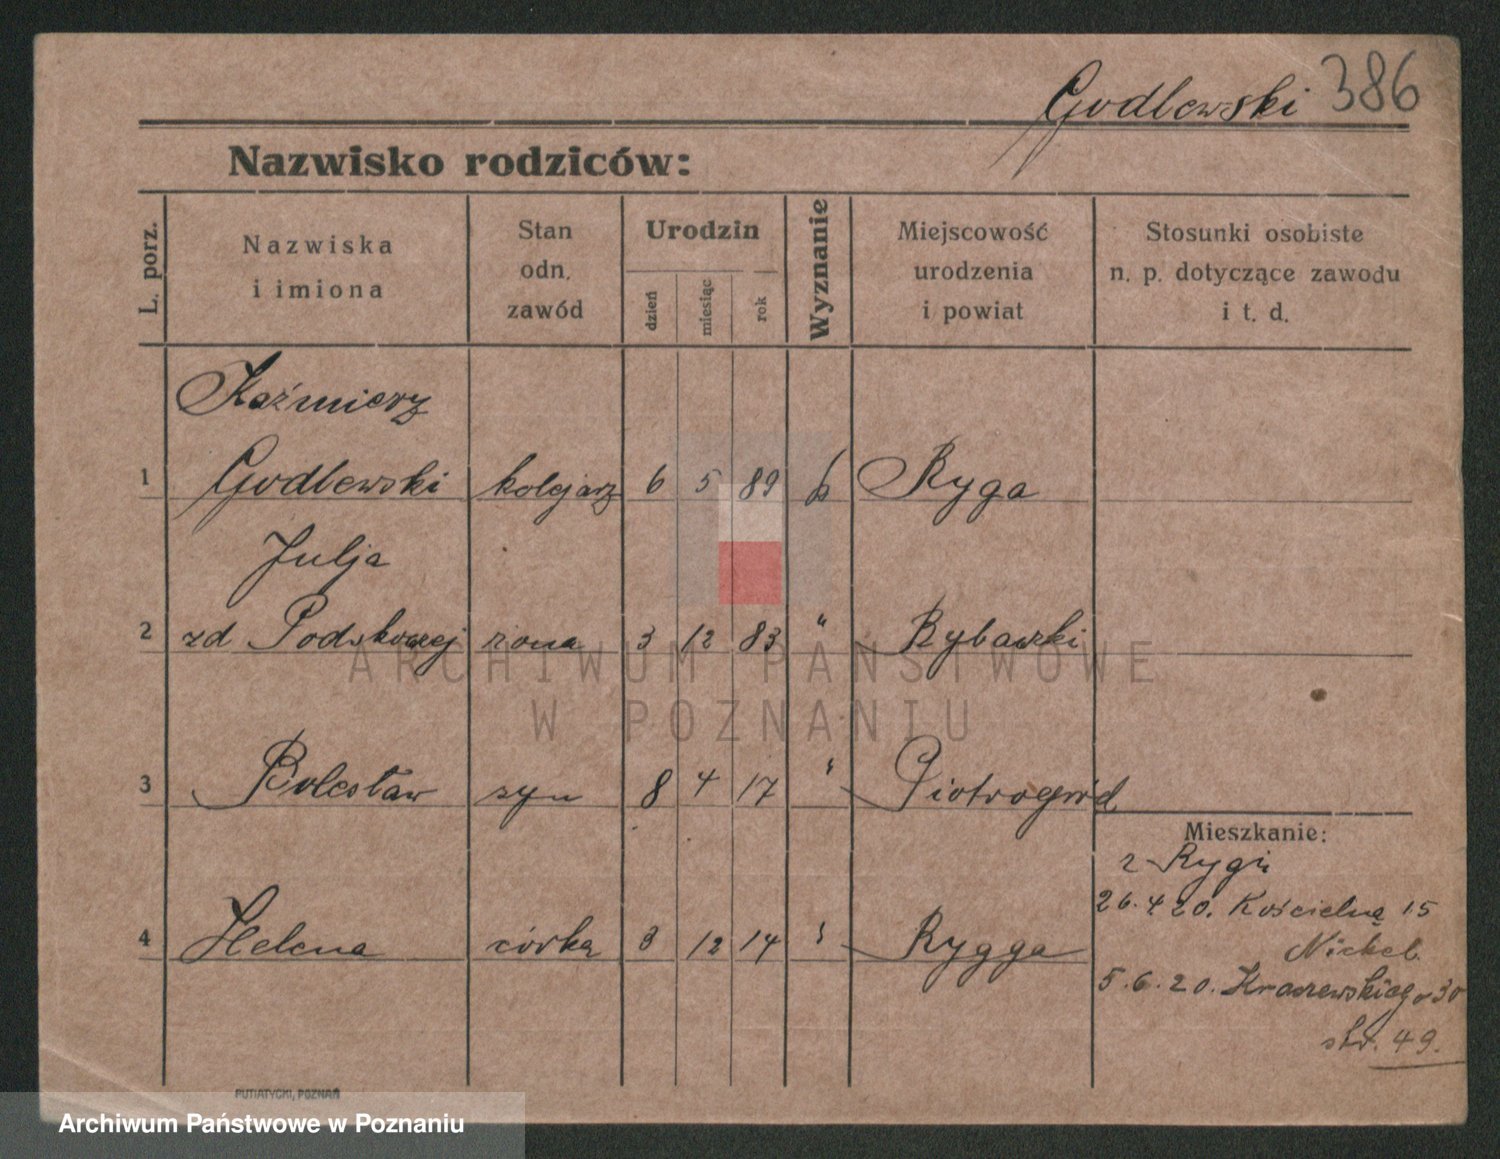 Godlewski 386
Nazwisko rodziców:
L. porz.
Nazwiska
i imiona
Stan
odn.
zawód
Urodzin
dzień
miesiąc
rok
Wyznanie
Miejscowość
urodzenia
i powiat
Stosunki osobiste
n. p. dotyczące zawodu
i t. d.
Kaźmierz
1 Godlewski kolejarz 6 5 89 Ryga
Julja
2 zd żona 3 12 83 "
3 Bolesław syn 8 4 17 " Piotrogród
4 Helena córka 3 12 14 " Rygga
Mieszkanie:
z Rygii
26.4 20. Kościelna 15
Nickel
5.6.20. Kraszewskiego 30
str. 49.
ARCHIWUM PAŃSTWOWE
W POZNANIU
PUTIATYCKI, POZNAŃ
Archiwum Państwowe w Poznaniu